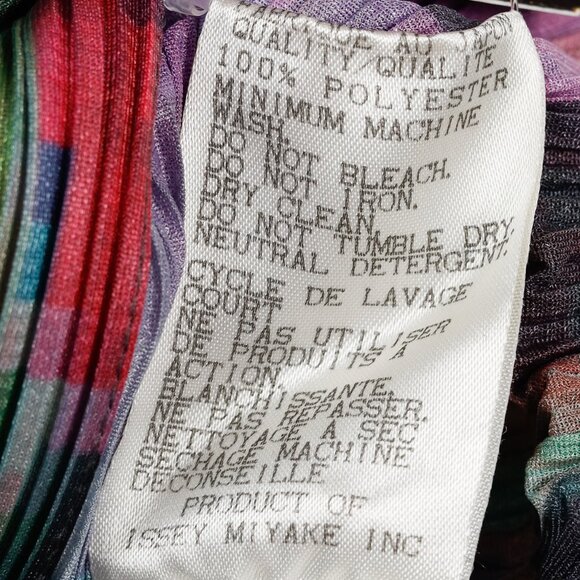 AU JAPON
QUALITY/QUALITE
100% POLYESTER
MINIMUM MACHINE
WASH.
DO NOT BLEACH.
DO NOT IRON.
DRY CLEAN.
DO NOT TUMBLE DRY.
NEUTRAL DETERGENT.
CYCLE DE LAVAGE
COURT
NE PAS UTILISER
DE PRODUITS A
ACTION.
BLANCHISSANTE.
NE PAS REPASSER.
NETTOYAGE A SEC
SECHAGE MACHINE
DECONSEILLE
PRODUCT OF
ISSEY MIYAKE INC